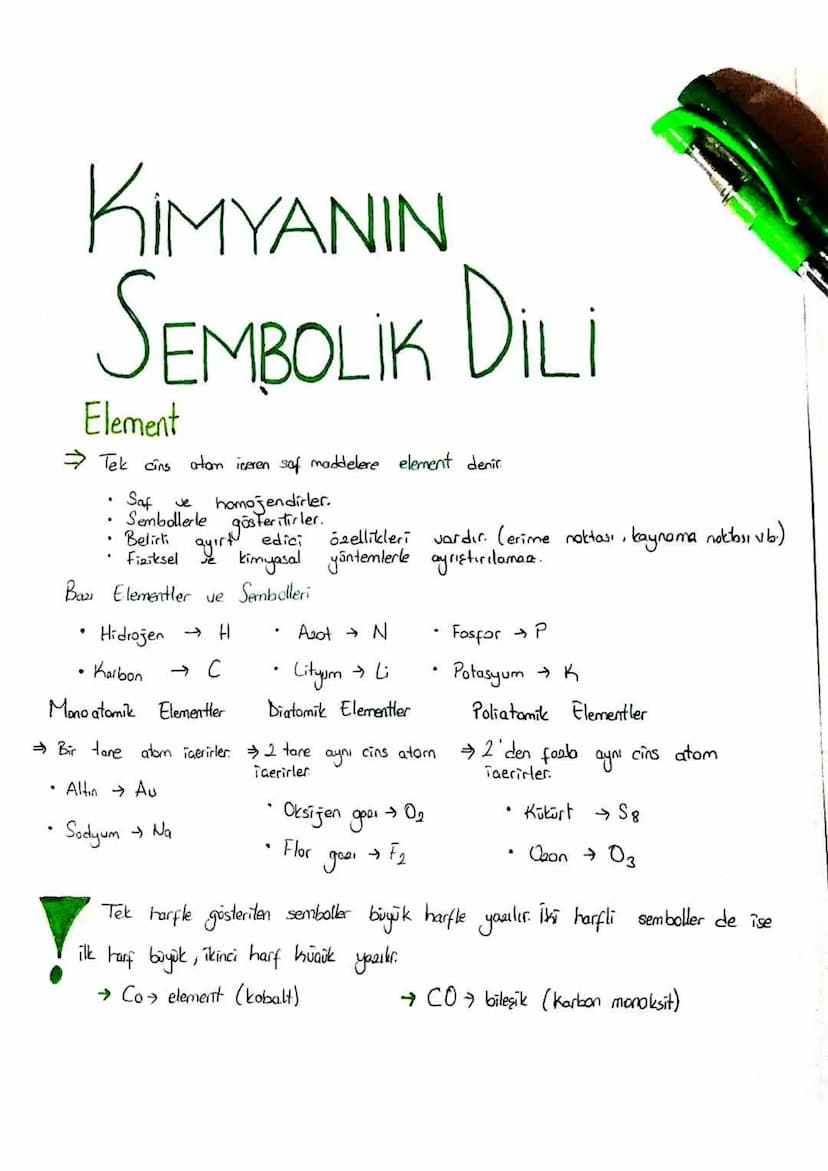 KİMYANIN
SEMBOLİK DİLİ
Element
⇒ Tek cins atom içeren saf maddelere element denir.
• Saf ve homojendirler.
• Sembollerle gösterilirler.
• Belirli ayırt edici özellikleri vardır. (erime noktası, kaynama noktası vb.)
• Fiziksel ve kimyasal yöntemlerle ayrıştırılamaz.
Bazı Elementler ve Sembolleri
• Hidrojen → H • Azot → N • Fosfor → P
• Karbon → C • Lityum → Li • Potasyum → K
Monoatomik Elementler Diatomik Elementler Poliatomik Elementler
⇒ Bir tane atom içerirler. ⇒ 2 tane aynı cins atom ⇒ 2'den fazla aynı cins atom
içerirler. içerirler.
• Altın → Au
• Oksijen gazı → O₂ • Kükürt → S₈
• Sodyum → Na
• Flor gazı → F₂ • Ozon → O₃
! Tek harfle gösterilen semboller büyük harfle yazılır. İki harfli semboller de ise
ilk harf büyük, ikinci harf küçük yazılır.
→ Co → element (kobalt) → CO → bileşik (karbon monoksit)